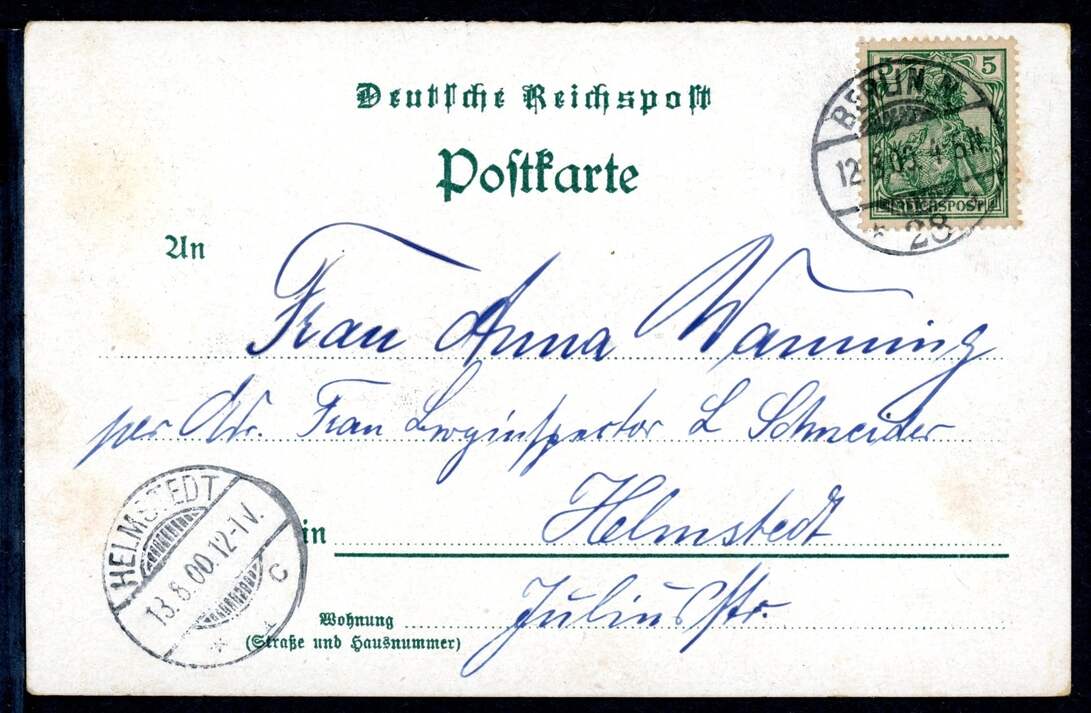 Deutsche Reichspost
Postkarte
5 5
REICHSPOST
BERLIN N.
12.8.00 4-5N.
* 28
An
Frau Anna Wanning
per Adr. Frau Berginspector L Schneider
in Helmstedt
HELMSTEDT
13.8.00.12-1V.
* * C
Wohnung
(Straße und Hausnummer)
Juliusstr.